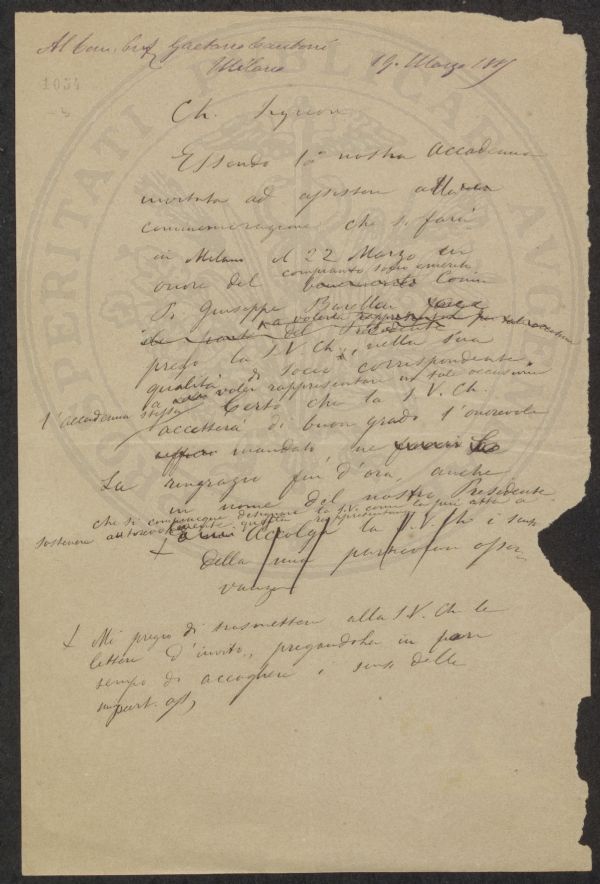 Al Com. Prof. Gaetano Cantoni
Milano 19. Marzo 18
1034
Ch. Signore
Essendo la nostra Accademia
invitata ad assistere alla
commemorazione che si farà
in Milano il 22 Marzo in
onore del compianto socio emerito
Giuseppe Barellai
prego la S.V. Ch., nella sua
qualità di socio corrispondente,
a voler rappresentare in tale occasione
l'accademia stessa. Certo che la S.V. Ch.
accetterà di buon grado l'onorevole
mandato, ne
La ringrazio fin d'ora, anche
in nome del nostro Presidente
che si compiacque designare la S.V. come la più atta a
sostenere autorevolmente questa rappresentanza
+ Accolga la S.V. Ch. i sensi
della mia particolare osser-
vanza
+ Mi pregio di trasmettere alla S.V. Ch. le
lettere d'invito, pregandola in pari
tempo di accogliere i sensi della
part. oss.
PROSPERITATI PUBLICAE AUGENDAE